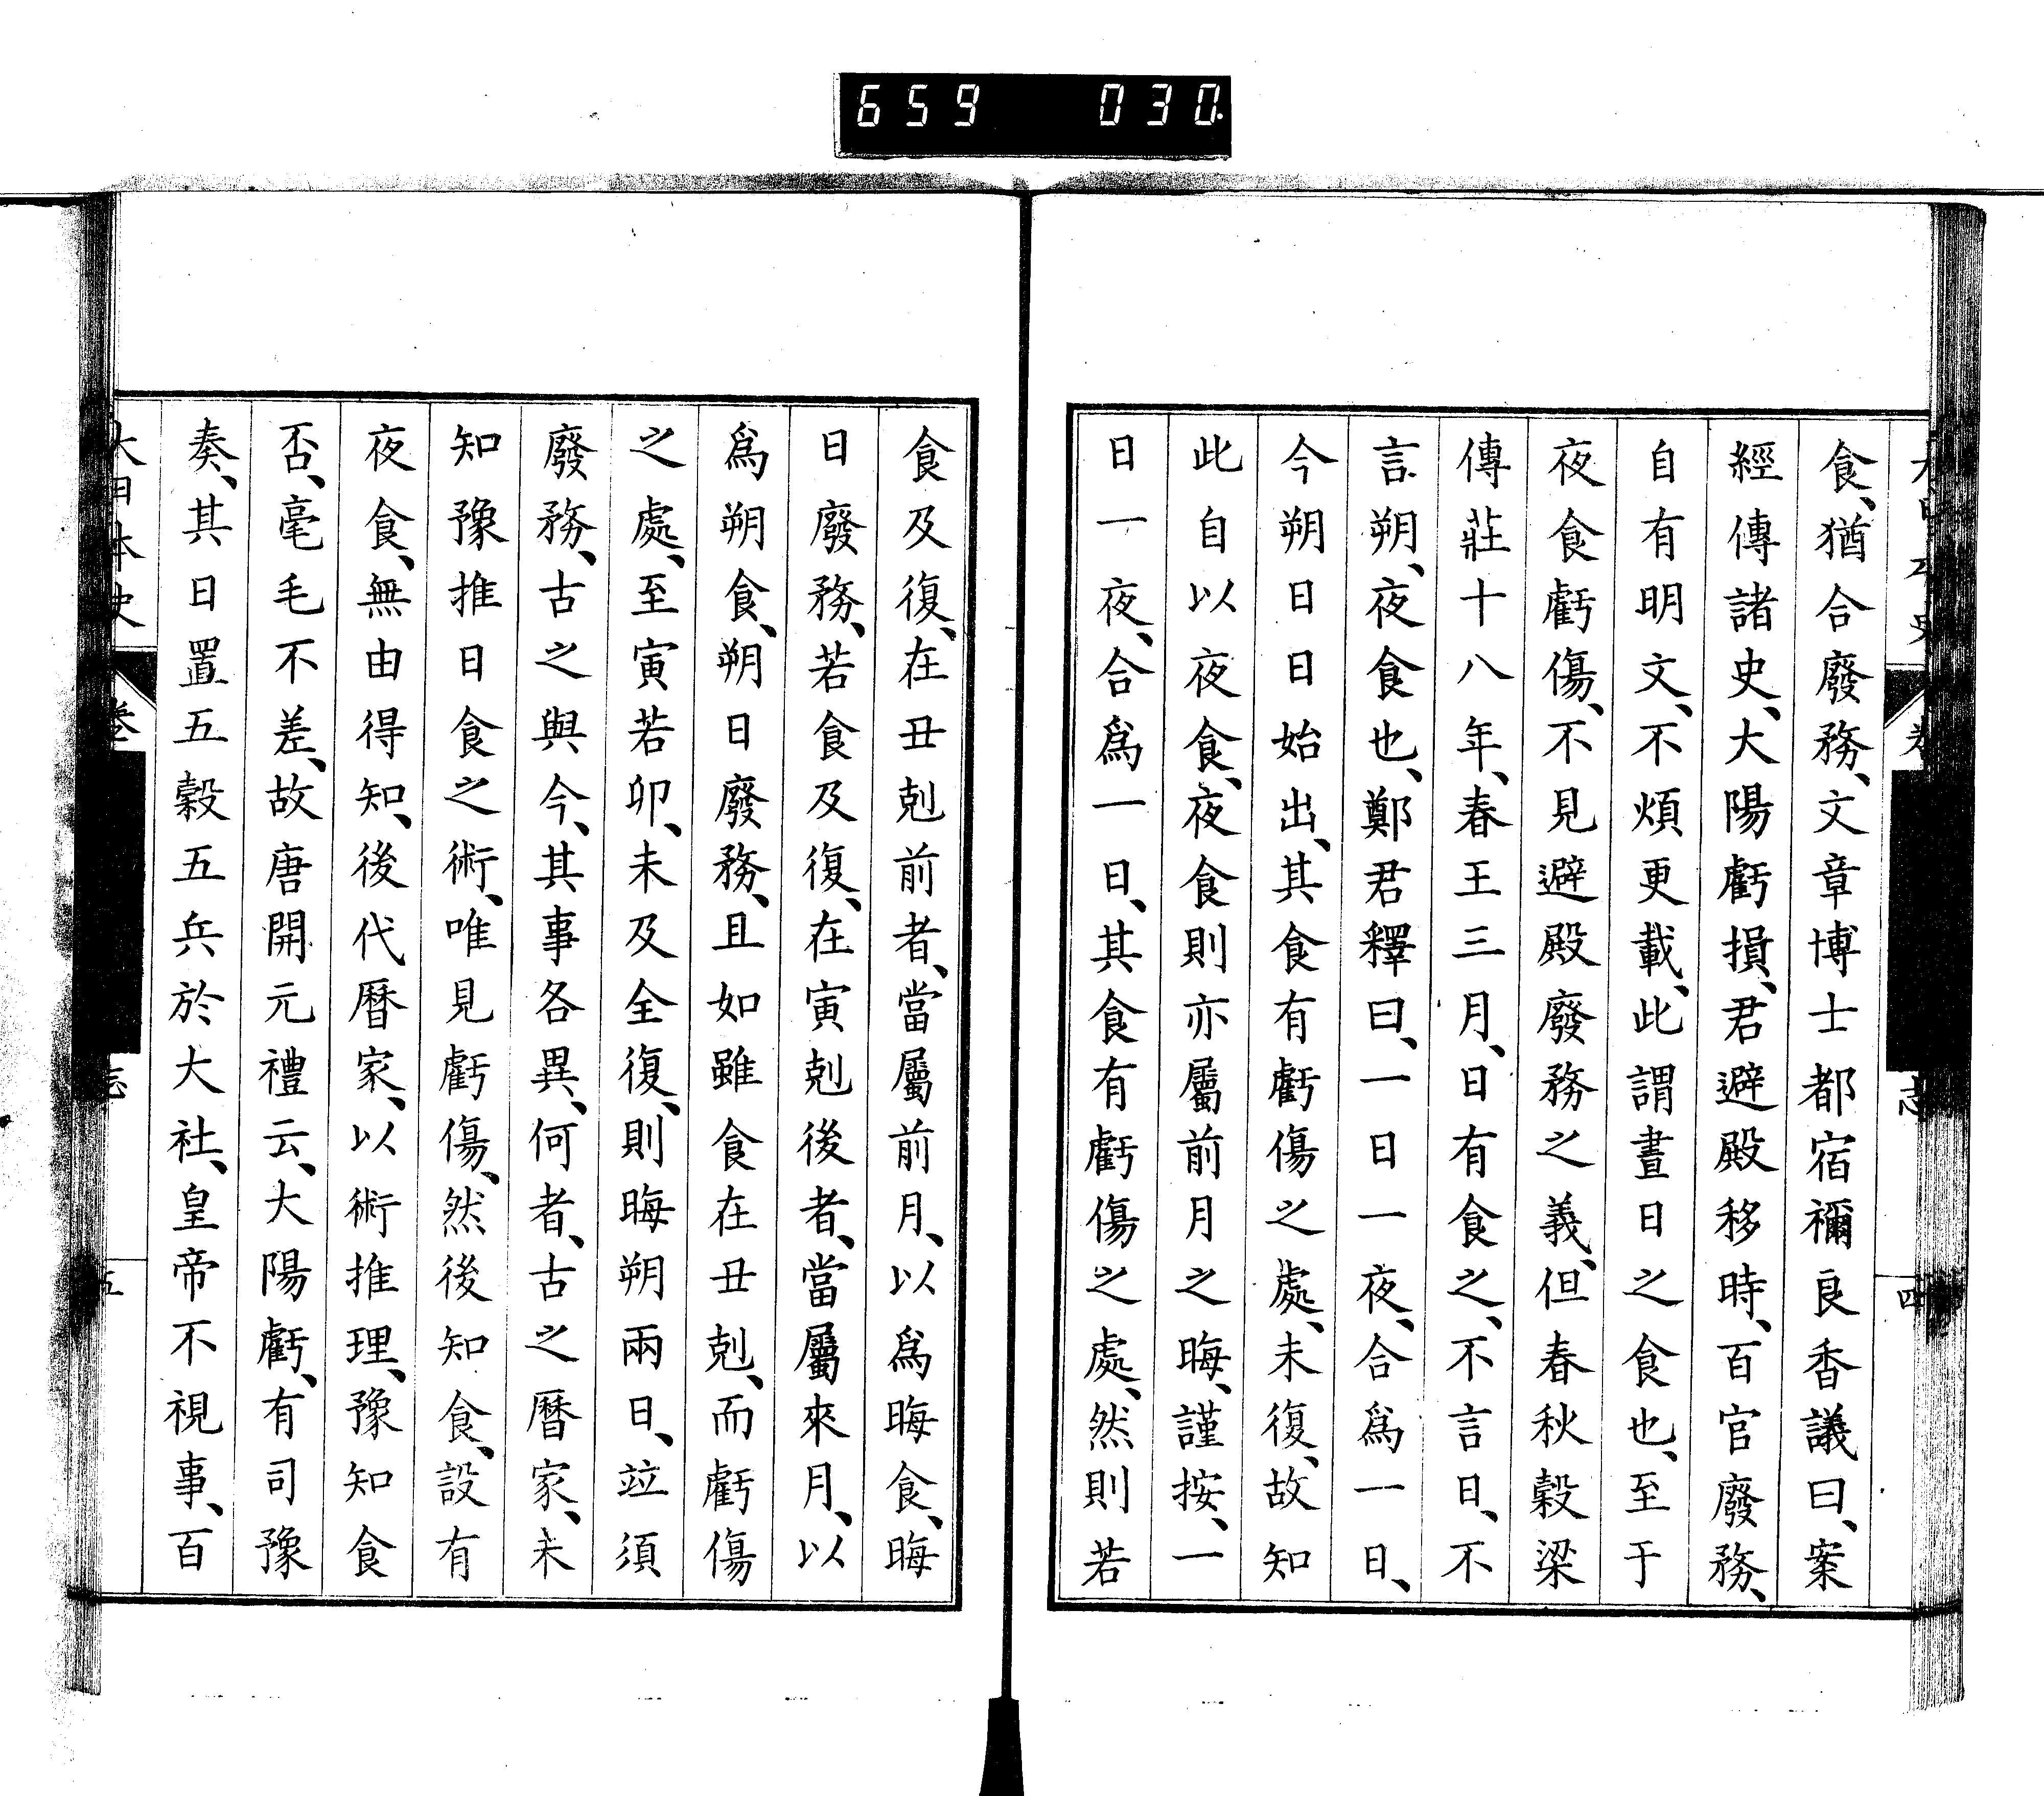 659 030
食、猶合廢務、文章博士都宿禰良香議曰、案
經傳諸史、大陽虧損、君避殿移時、百官廢務、
自有明文、不煩更載、此謂晝日之食也、至于
夜食虧傷、不見避殿廢務之義、但春秋穀梁
傳莊十八年、春王三月、日有食之、不言日、不
言朔、夜食也、鄭君釋曰、一日一夜、合爲一日、
今朔日日始出、其食有虧傷之處、未復、故知
此自以夜食、夜食則亦屬前月之晦、謹按、一
日一夜、合爲一日、其食有虧傷之處、然則若
食及復、在丑剋前者、當屬前月、以爲晦食、晦
日廢務、若食及復、在寅剋後者、當屬來月、以
爲朔食、朔日廢務、且如雖食在丑剋、而虧傷
之處、至寅若卯、未及全復、則晦朔兩日、竝須
廢務、古之與今、其事各異、何者、古之曆家、未
知豫推日食之術、唯見虧傷、然後知食、設有
夜食、無由得知、後代曆家、以術推理、豫知食
否、毫毛不差、故唐開元禮云、大陽虧、有司豫
奏、其日置五穀五兵於大社、皇帝不視事、百